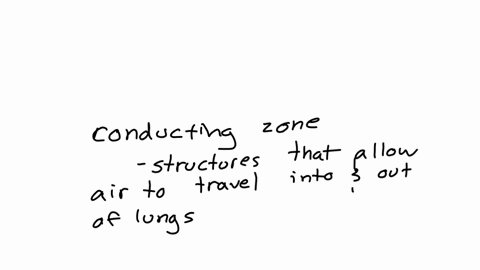 conducting zone
-structures that allow
air to travel into & out
of lungs